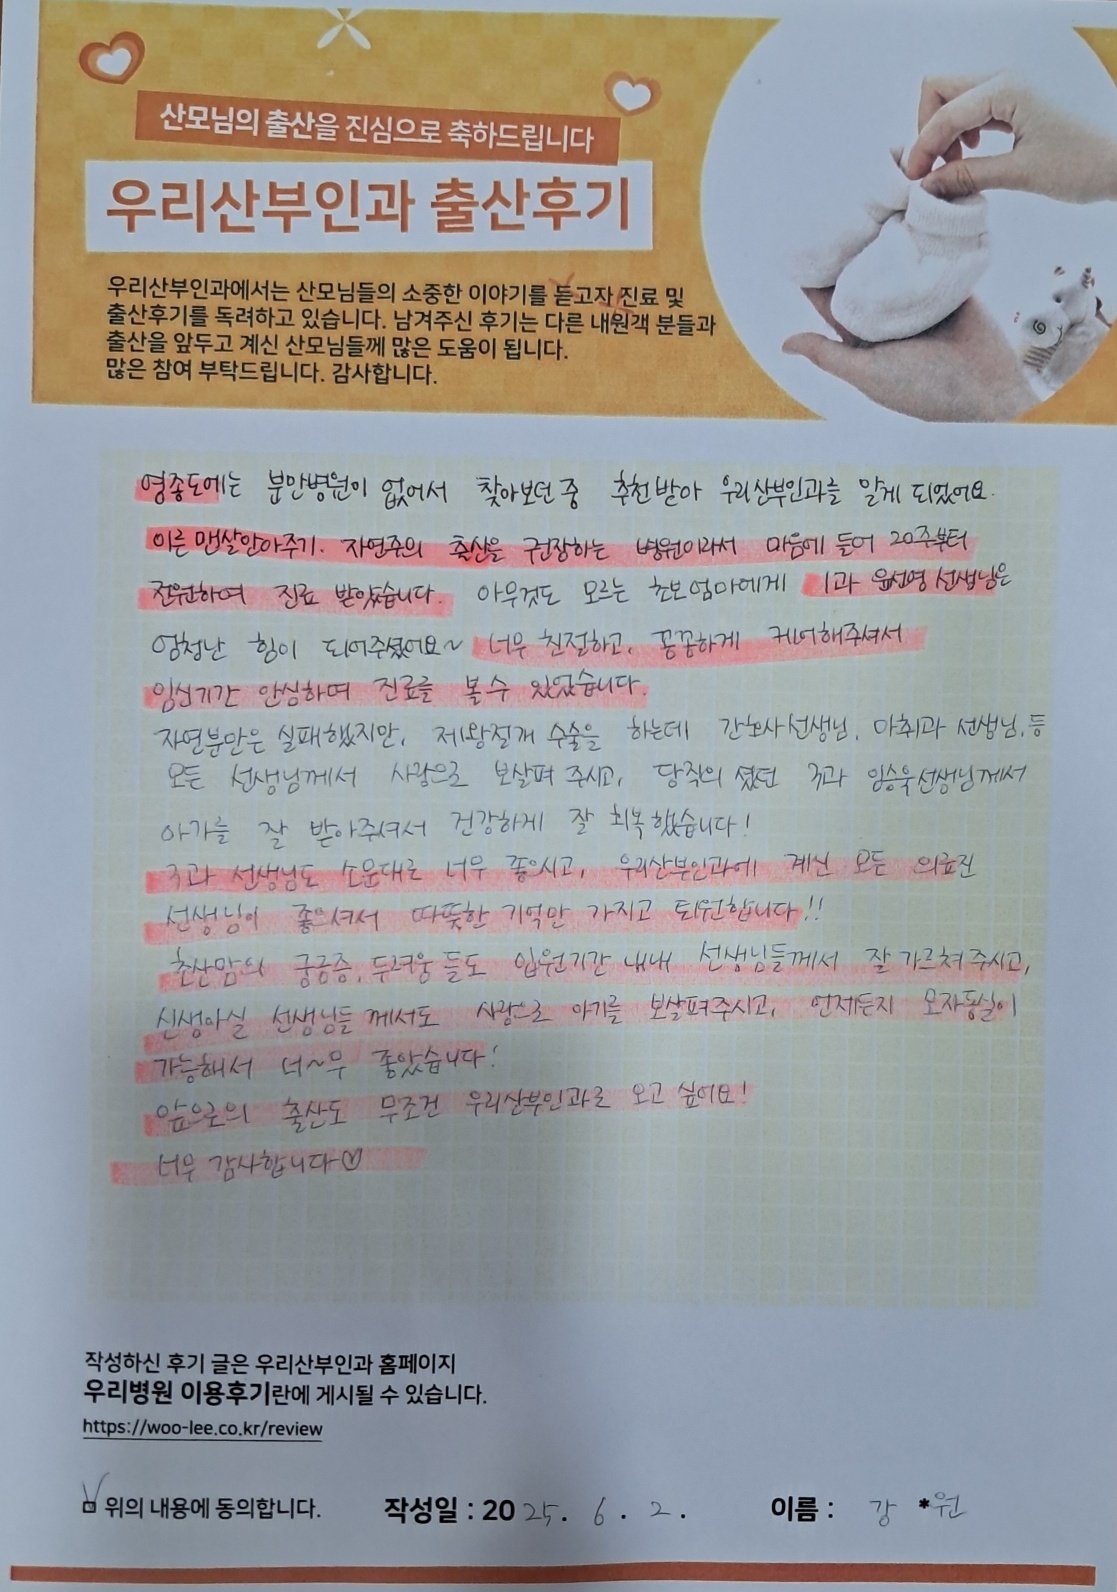 산모님의 출산을 진심으로 축하드립니다
우리산부인과 출산후기
우리산부인과에서는 산모님들의 소중한 이야기를 듣고자 진료 및
출산후기를 독려하고 있습니다. 남겨주신 후기는 다른 내원객 분들과
출산을 앞두고 계신 산모님들께 많은 도움이 됩니다.
많은 참여 부탁드립니다. 감사합니다.
영종도에는 분만병원이 없어서 찾아보던 중 추천받아 우리산부인과를 알게 되었어요.
이른 맨살안아주기. 자연주의 출산을 권장하는 병원이라서 마음에 들어 20주부터
전원하여 진료 받았습니다. 아무것도 모르는 초보엄마에게 1과 윤선영 선생님은
엄청난 힘이 되어주셨어요~ 너무 친절하고, 꼼꼼하게 케어해주셔서
임신기간 안심하며 진료를 볼 수 있었습니다.
자연분만은 실패했지만, 제왕절개 수술을 하는데 간호사선생님, 마취과 선생님, 등
모든 선생님께서 사랑으로 보살펴 주시고, 당직의셨던 3과 임승욱선생님께서
아가를 잘 받아주셔서 건강하게 잘 회복했습니다!
3과 선생님도 소문대로 너무 좋으시고, 우리산부인과에 계신 모든 의료진
선생님이 좋으셔서 따뜻한 기억만 가지고 퇴원합니다!!
초산맘의 궁금증, 두려움 들도 입원기간 내내 선생님들께서 잘 가르쳐주시고,
신생아실 선생님들 께서도 사랑으로 아기를 보살펴주시고, 언제든지 모자동실이
가능해서 너~무 좋았습니다!
앞으로의 출산도 무조건 우리산부인과로 오고 싶어요!
너무 감사합니다♡
작성하신 후기 글은 우리산부인과 홈페이지
우리병원 이용후기란에 게시될 수 있습니다.
https://woo-lee.co.kr/review
위의 내용에 동의합니다. 작성일 : 2025. 6. 2. 이름 : 강 *원